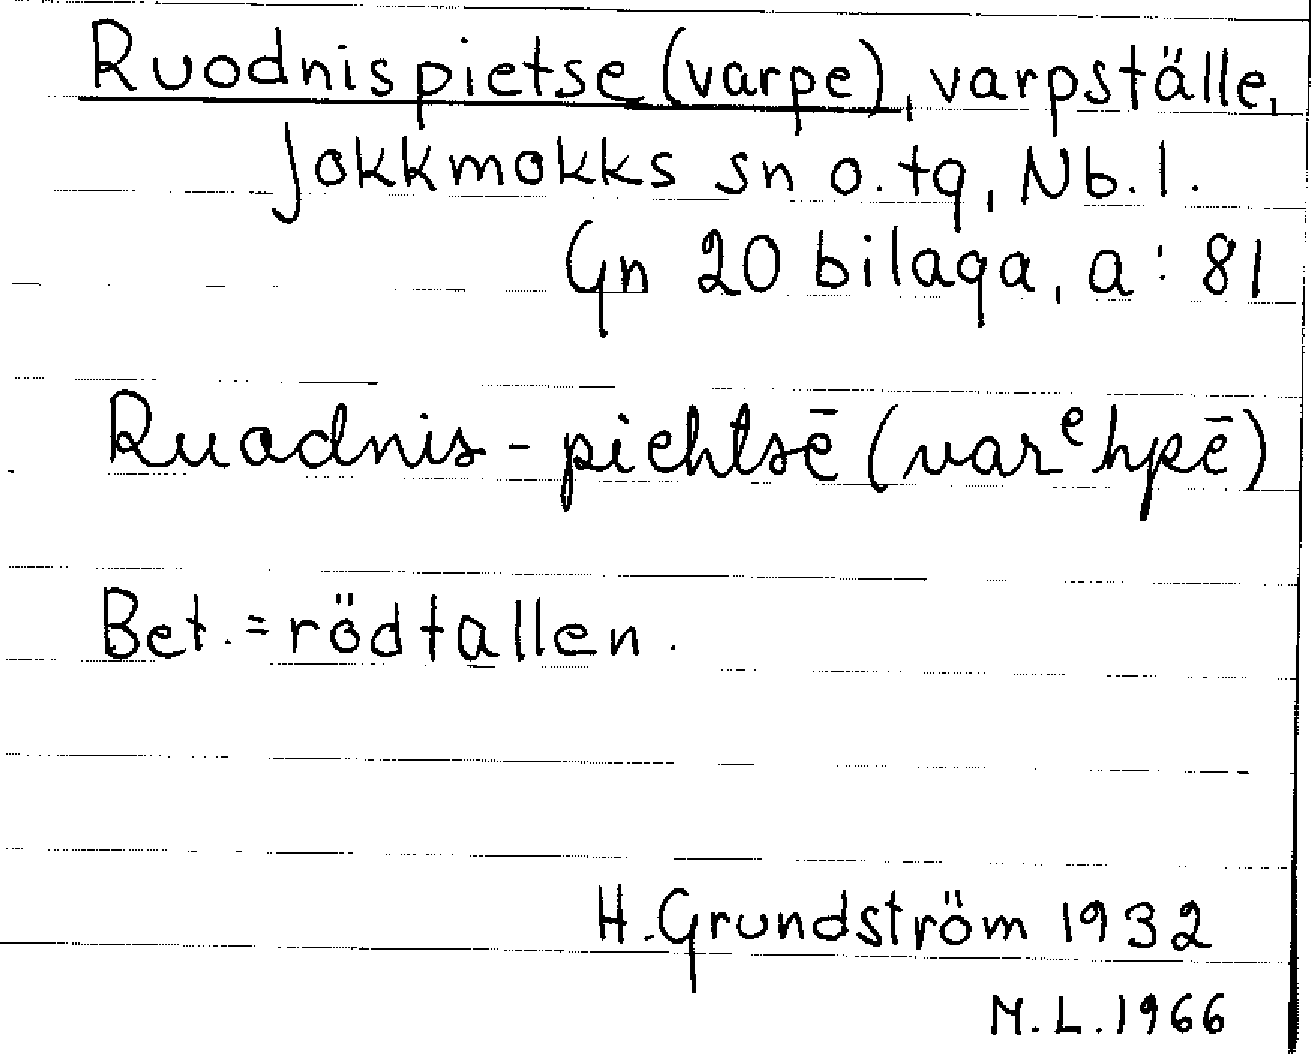 Ruodnispietse (varpe), varpställe,
Jokkmokks sn o. tg, Nb. l.
Gn 20 bilaga, a: 81
Ruadnis-piehtsē (varᵉhpē)
Bet. = rödtallen.
H. Grundström 1932
M.L. 1966